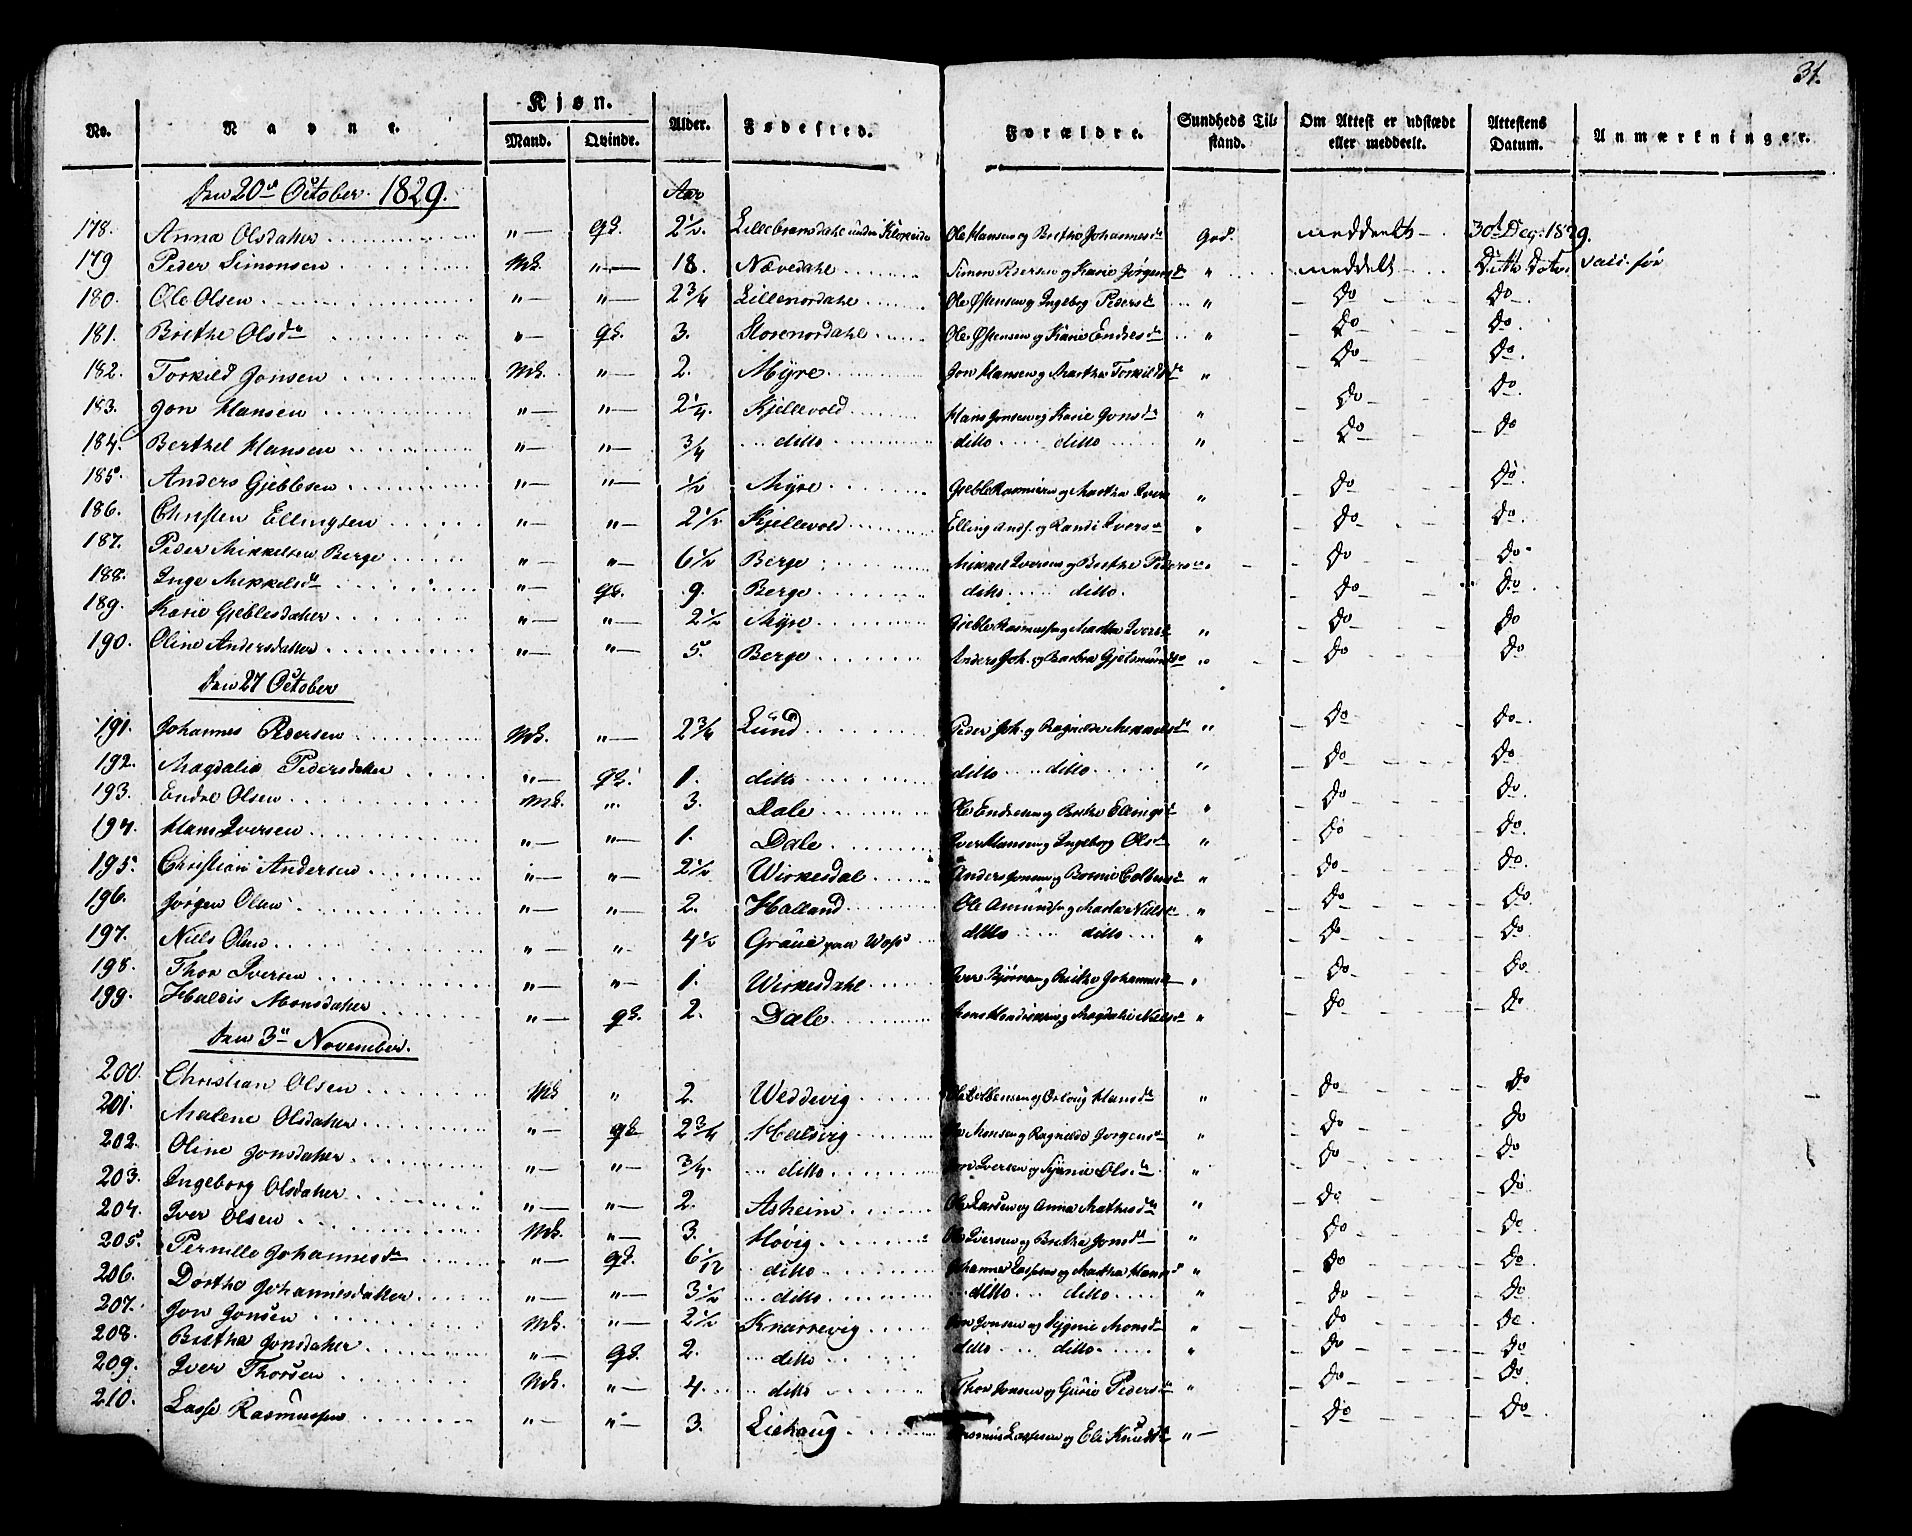 31.
No. Navne. Kjøn. Mand. Qvinde. Alder. Fødested. Forældre. Sundheds Tilstand. Om Attest er udstædt eller meddeelt. Attestens Datum. Anmærkninger.
Den 20de October 1829. Aar
178. Anna Olsdatter " — qk. 2 1/2 Ole Hansen og Brithe Johannesdr God. meddeelt 30te Dec: 1829.
179 Peder Simonsen Mk. " — 18. Nævedahl Simon Pedersen og Karie Jørgensdr " meddelt Ditto Dato
180. Ole Olsen " — " — 2 3/4 Lillenordahl Ole Østensen og Ingeborg Pedersdr " Do Do
181. Brithe Olsdr " — qk. 3. Storenordahl Ole Østensen og Karie Endresdr " Do Do
182. Torkild Jonsen Mk. " — 2. Myre Jon Hansen og Martha Torkildsdr " Do Do
183. Jon Hansen " — " — 2 1/4. Kjellevold Hans Jonsen og Karie Jonsdr " Do Do
184. Berthel Hansen " — " — 3/4 ditto ditto ditto " Do Do
185. Anders Gieblesen " — " — 1/2 Myre Gieble Rasmusen og Martha Ivers " Do Do
186. Christen Ellingsen " — " — 2 1/2 Kjellevold Elling Ands. og Randi Iversdr " Do Do
187. Peder Mikkelsen Berge " — " — 6 1/2 Berge Mikkel Iversen og Brithe Pedersdr " Do Do
188. Inge Mikkelsdr " — qk. 9. Berge ditto ditto. Do Do
189. Karie Gieblesdatter " — " — 2 1/2 Myre Gieble Rasmusen og Martha Iversdr " Do Do
190. Oline Andersdatter " — " — 5. Berge Anders Joh. og Barbra Gjetmundsdr " Do Do
Den 27 October
191. Johannes Pedersen Mk. " — 2 3/4 Lund Peder Joh. og Ragnilde Mikkelsdr " Do Do
192. Magdalie Pedersdatter " — qk. 1. ditto ditto ditto " Do Do
193. Endre Olsen Mk. " 3. Dale Ole Endresen og Brithe Ellingsdr " Do Do
194. Hans Iversen " — " — 1. Dale Iver Hansen og Ingeborg Olsdr " Do Do
195. Christian Andersen " — " — 2 1/2 Wirkesdal Anders Jonsen og " Do Do
196. Jørgen Olsen " — " — 2. Halland Ole Amundsen og Marta Nielsdr " Do Do
197. Niels Olsen " — " 4 1/2 Graue paa Woss ditto ditto " Do Do
198. Thor Iversen " — " — 1. Wirkesdahl Iver Bjørnsen og Brithe Johannesdr " Do Do
199. Huldis Monsdatter " — qk. 2. Dale Mons Hendriksen og Magdalie Nielsdr " Do Do
Den 3de November.
200. Christian Olsen Mk " 2. Weddevig " Do Do
201. Malene Olsdatter " — qk 2 3/4 Helsvig Monsen og Ragnilde Jørgensdr " Do Do
202. Oline Jonsdatter " — " — 3/4. ditto Jon Iversen og Olsdr " Do Do
203. Ingeborg Olsdatter " — " — 2. Asheim Ole Larsen og Anna Mathisdr " Do Do
204. Iver Olsen Mk. " — 3. Høvig Ole Iversen og Brithe Jonsdr " Do Do
205. Pernille Johannesdr " — qk. 6/12 ditto Johannes Lassesen og Martha Hansdr " Do Do
206. Dorthe Johannesdatter " — " — 3 1/2 ditto ditto ditto " Do Do
207. Jon Jonsen Mk. " — 2 1/2 Knarrevig Jon Jonsen og Sygnie Monsdr " Do Do
208. Britha Jonsdatter " — qk. 2. ditto ditto ditto " Do Do
209. Iver Thorsen Mk. " — 4. ditto Thor Jonsen og Gurie Pedersdr " Do Do
210. Lasse Rasmussen " — " — 3. Liehaug Rasmus Lassesen og Eli Knudsdr " — Do Do